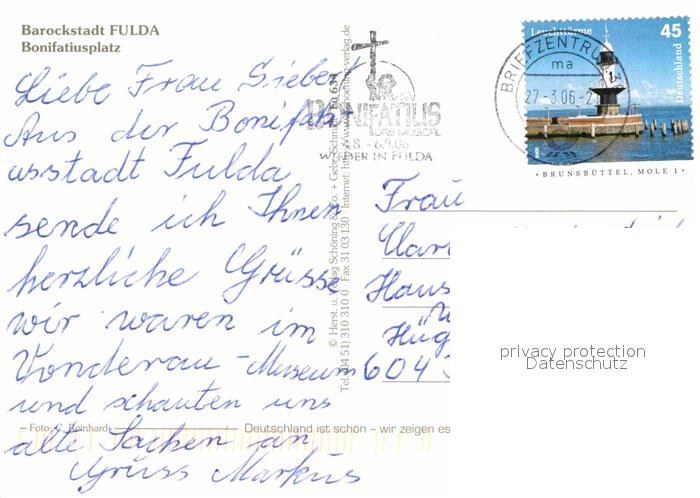 Barockstadt FULDA
Bonifatiusplatz
Liebe Frau Siebert
Aus der Bonifati-
usstadt Fulda
sende ich Ihnen
herzliche Grüsse
wir waren im
Vonderau-Museum
und schauten uns
alte Sachen an
Gruss Markus
Foto: C. Reinhard
Deutschland ist schön – wir zeigen es
© Herst. u. Verlag Schöning & Co. + Gebr. Schmidt
Tel. (04 51) 310 310 0 · Fax 31 03 130 · Internet:
BONIFATIUS
DAS MUSICAL
- 6.9.06
WIEDER IN FULDA
BRIEFZENTRUM
ma
27-3.06-2
Leuchttürme
45
Deutschland
· BRUNSBÜTTEL, MOLE 1 ·
Frau
Haus
604
privacy protection
Datenschutz